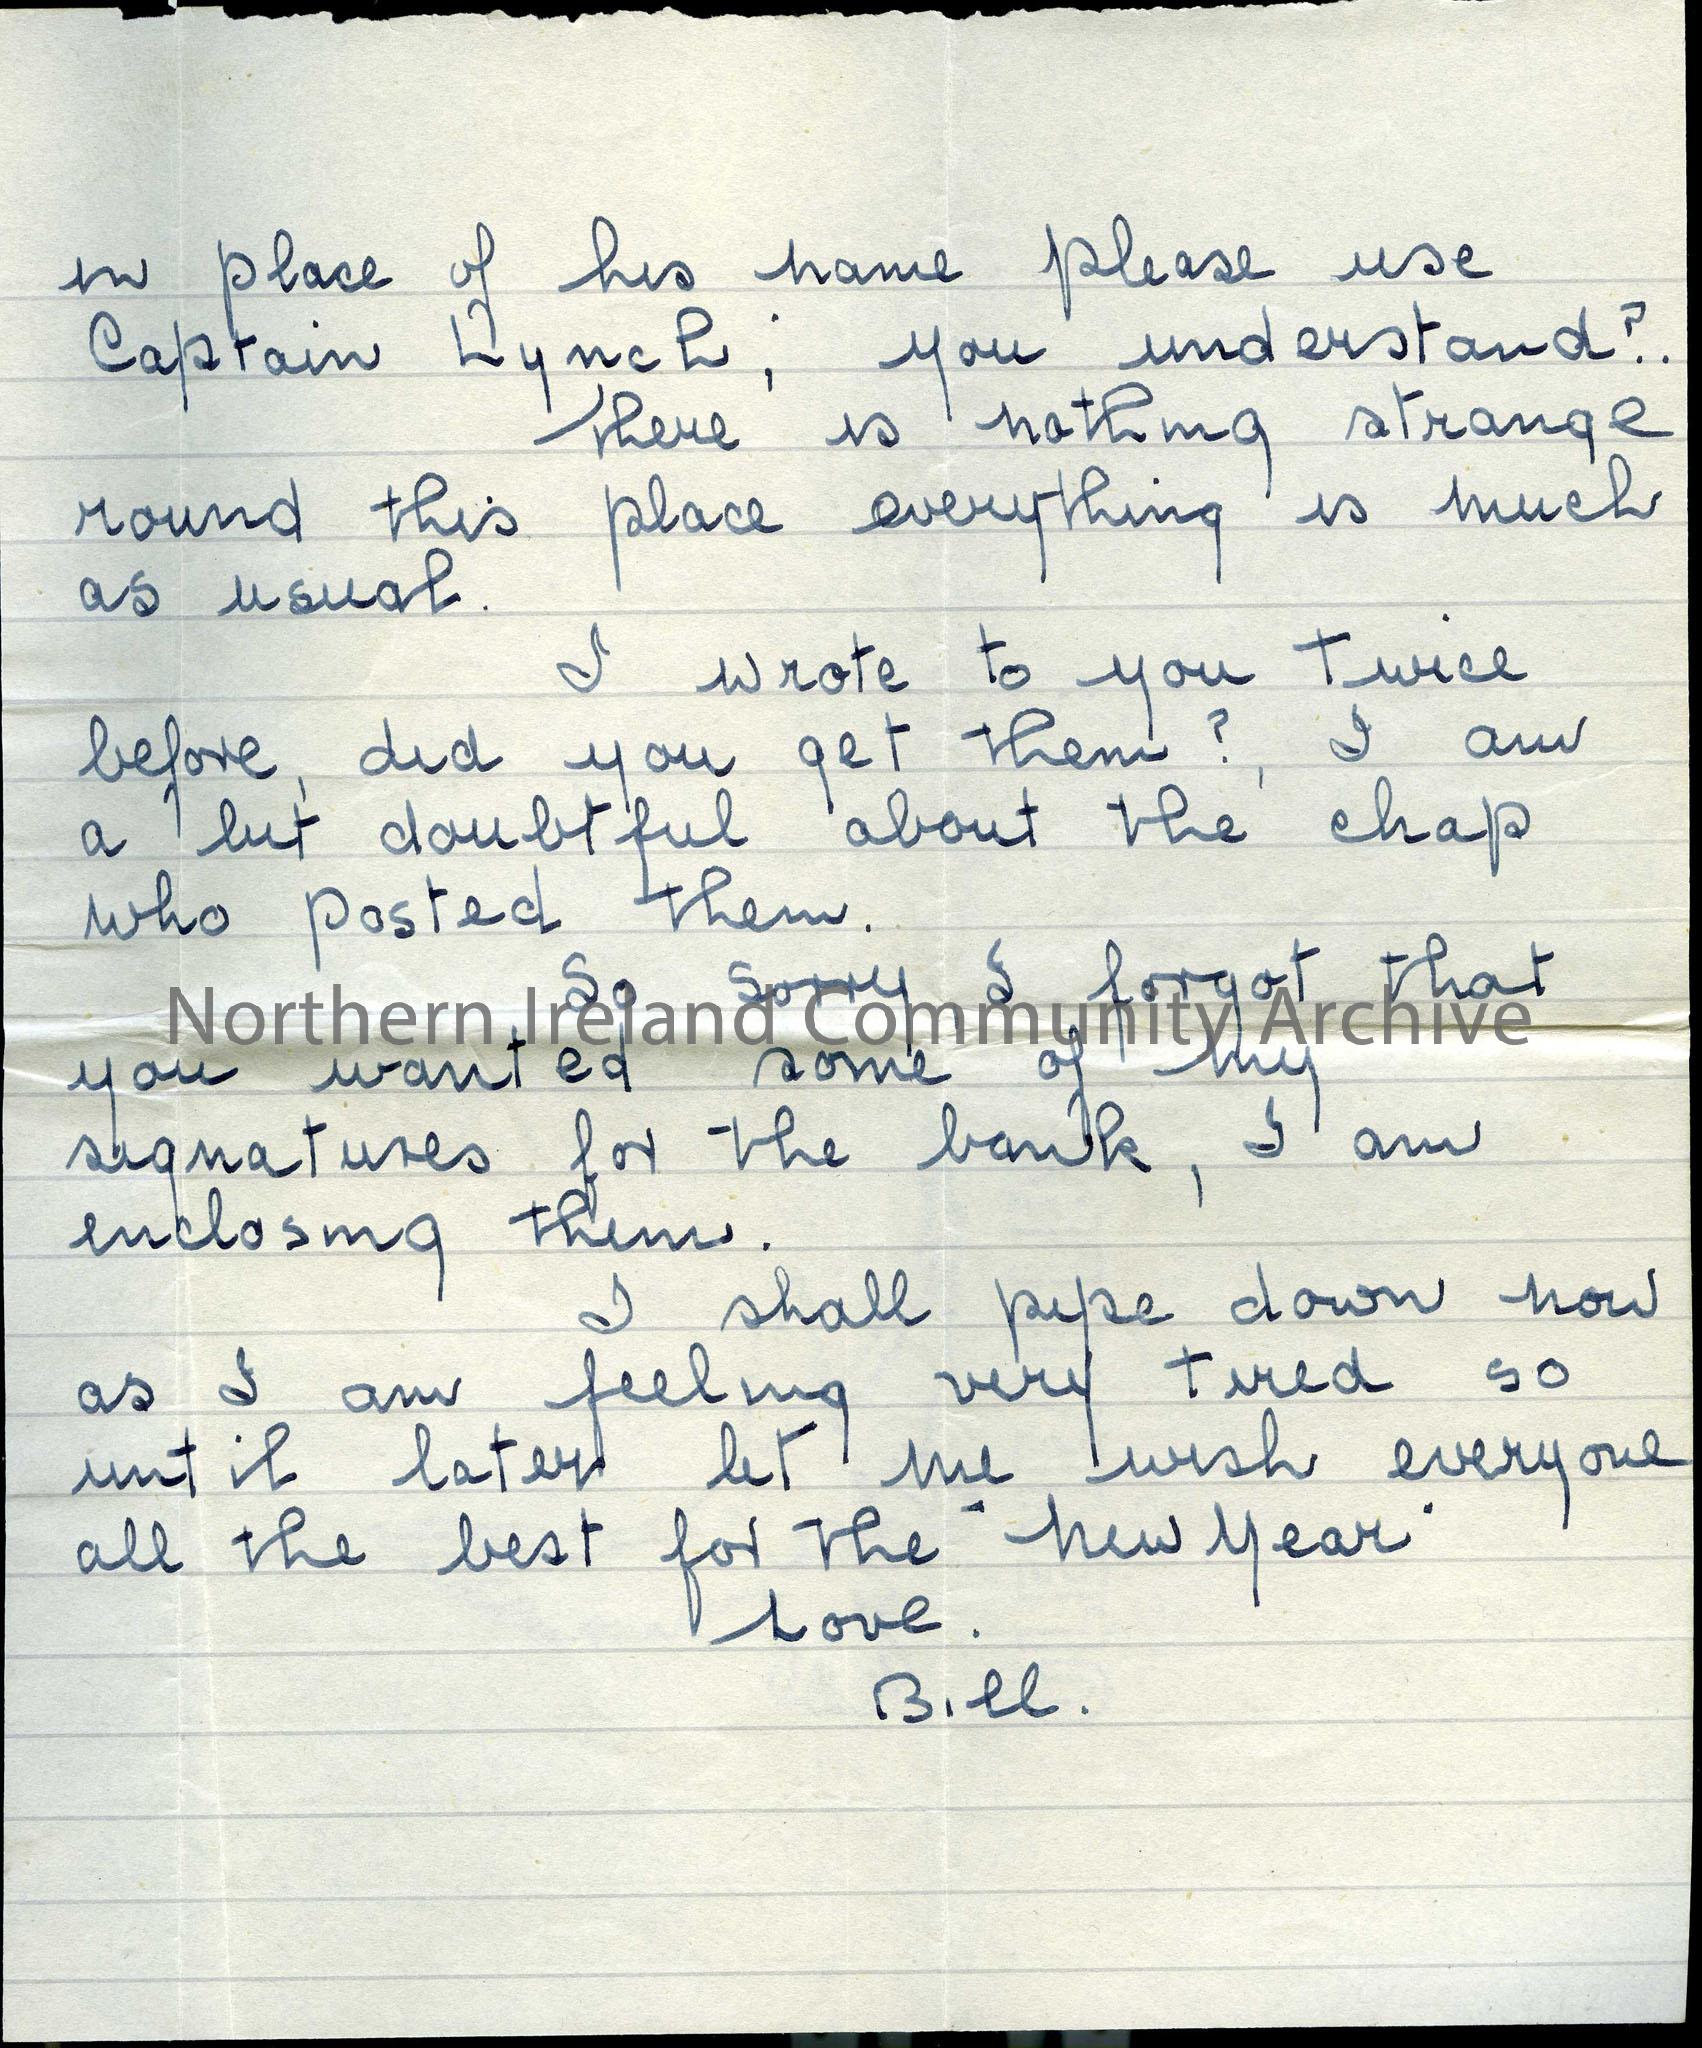 in place of his name please use
Captain Lynch; you understand?.
There is nothing strange
round this place everything is much
as usual.
I wrote to you twice
before, did you get them?, I am
a bit doubtful about the chap
who posted them.
So sorry I forgot that
Northern Ireland Community Archive
you wanted some of my
signatures for the bank, I am
enclosing them.
I shall pipe down now
as I am feeling very tired so
until later let me wish everyone
all the best for the "New Year"
Love.
Bill.